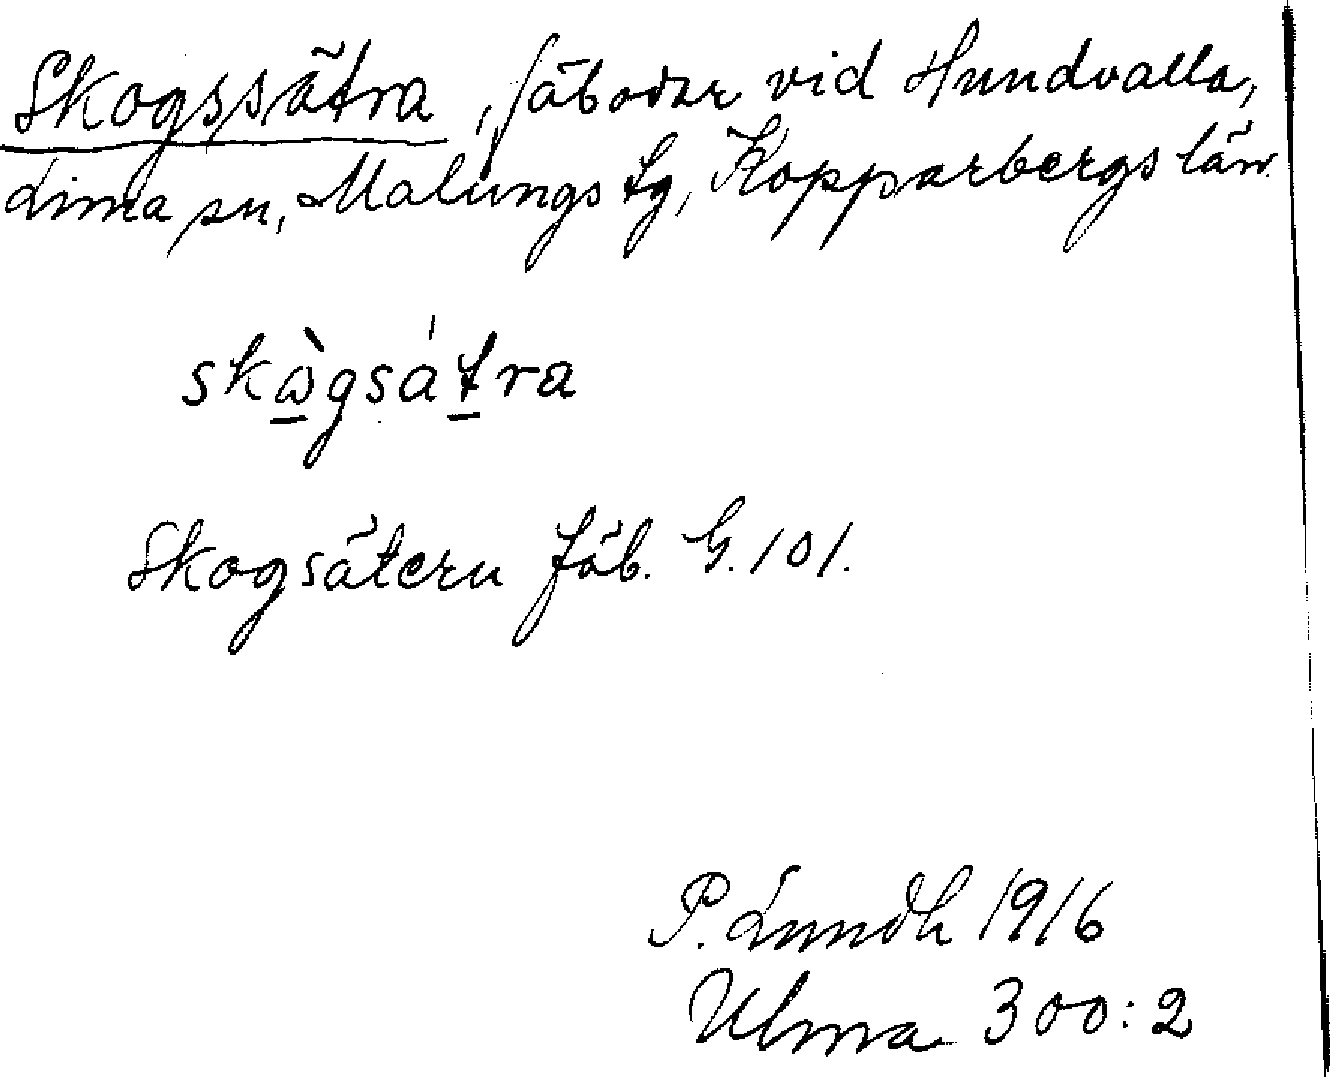 Skogssätra, fäbodar vid Hundvalla,
Lima sn, Malungs tg, Kopparbergs län.
skὼ̱gsáṯra
Skogsätern fäb. G. 101.
P. Lundh 1916
Ulma 300:2